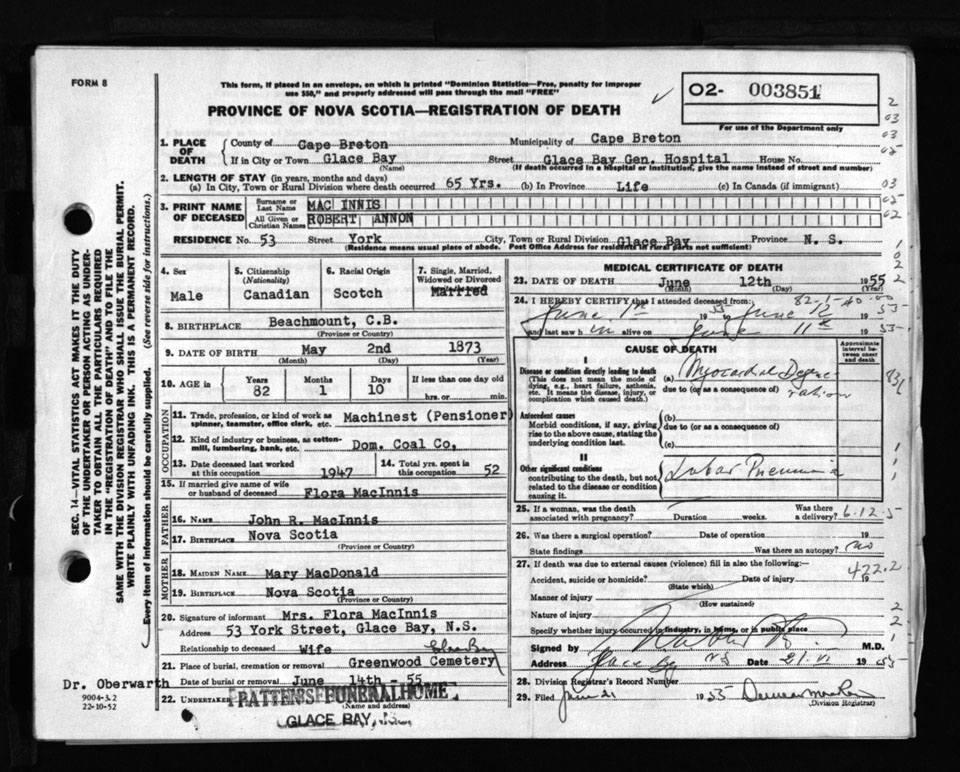 FORM 8
This form, if placed in an envelope, on which is printed "Dominion Statistics—Free, penalty for improper
use $50," and properly addressed will pass through the mail "FREE"
PROVINCE OF NOVA SCOTIA—REGISTRATION OF DEATH
O2- 003851
For use of the Department only
1. PLACE OF DEATH
County of Cape Breton Municipality of Cape Breton
If in City or Town Glace Bay Street Glace Bay Gen. Hospital House No.
(Name) (If death occurred in a hospital or institution, give the name instead of street and number)
2. LENGTH OF STAY (in years, months and days)
(a) In City, Town or Rural Division where death occurred 65 Yrs. (b) In Province Life (c) In Canada (if immigrant)
3. PRINT NAME OF DECEASED
Surname or Last Name MAC INNIS
All Given or Christian Names ROBERT ANNON
RESIDENCE No. 53 Street York City, Town or Rural Division Glace Bay Province N. S.
(Residence means usual place of abode. Post Office Address for residents in rural parts not sufficient)
4. Sex
Male
5. Citizenship (Nationality)
Canadian
6. Racial Origin
Scotch
7. Single, Married, Widowed or Divorced
Married
8. BIRTHPLACE Beachmount, C.B.
(Province or Country)
9. DATE OF BIRTH May 2nd 1873
(Month) (Day) (Year)
10. AGE in Years 82 Months 1 Days 10 If less than one day old
hrs. or min.
OCCUPATION
11. Trade, profession, or kind of work as spinner, teamster, office clerk, etc. Machinest (Pensioner)
12. Kind of industry or business, as cotton-mill, lumbering, bank, etc. Dom. Coal Co,
13. Date deceased last worked at this occupation 1947
14. Total yrs. spent in this occupation 52
15. If married give name of wife or husband of deceased Flora MacInnis
FATHER
16. NAME John R. MacInnis
17. BIRTHPLACE Nova Scotia
(Province or Country)
MOTHER
18. MAIDEN NAME Mary MacDonald
19. BIRTHPLACE Nova Scotia
(Province or Country)
20. Signature of informant Mrs. Flora MacInnis
Address 53 York Street, Glace Bay, N.S.
Relationship to deceased Wife
Glace Bay
21. Place of burial, cremation or removal Greenwood Cemetery
Date of burial or removal June 14th - 55
22. UNDERTAKER PATTENS FUNERAL HOME
(Name and address)
GLACE BAY,
Dr. Oberwarth
9004-3.2
22-10-52
SEC. 14—VITAL STATISTICS ACT MAKES IT THE DUTY
OF THE UNDERTAKER OR PERSON ACTING AS UNDER-
TAKER TO OBTAIN ALL THE PARTICULARS REQUIRED
IN THE "REGISTRATION OF DEATH" AND TO FILE THE
SAME WITH THE DIVISION REGISTRAR WHO SHALL ISSUE THE BURIAL PERMIT.
WRITE PLAINLY WITH UNFADING INK. THIS IS A PERMANENT RECORD.
Every item of information should be carefully supplied. (See reverse side for instructions.)
MEDICAL CERTIFICATE OF DEATH
23. DATE OF DEATH June 12th 1955
(Month) (Day) (Year)
24. I HEREBY CERTIFY that I attended deceased from: 82-1-40-00
June 1st 1955 to June 12 1955
and last saw h im alive on June 11th 1955
CAUSE OF DEATH
Approximate interval between onset and death
I
Disease or condition directly leading to death
(This does not mean the mode of dying, e.g., heart failure, asthenia, etc. It means the disease, injury, or complication which caused death.)
(a) Myocardial Degeneration
due to (or as a consequence of)
Antecedent causes
Morbid conditions, if any, giving rise to the above cause, stating the underlying condition last.
(b)
due to (or as a consequence of)
(c)
II
Other significant conditions
contributing to the death, but not related to the disease or condition causing it.
Lobar Pneumonia
25. If a woman, was the death associated with pregnancy? Duration weeks. Was there a delivery? 6-12-5
26. Was there a surgical operation? Date of operation 19
State findings Was there an autopsy? no
27. If death was due to external causes (violence) fill in also the following:— 422.2
Accident, suicide or homicide? Date of injury 19
(State which)
Manner of injury
(How sustained)
Nature of injury
Specify whether injury occurred in industry, in home, or in public place
Signed by M.D.
Address Glace Bay NS Date 21.VI 1955
28. Division Registrar's Record Number
29. Filed June 21 1955
(Division Registrar)